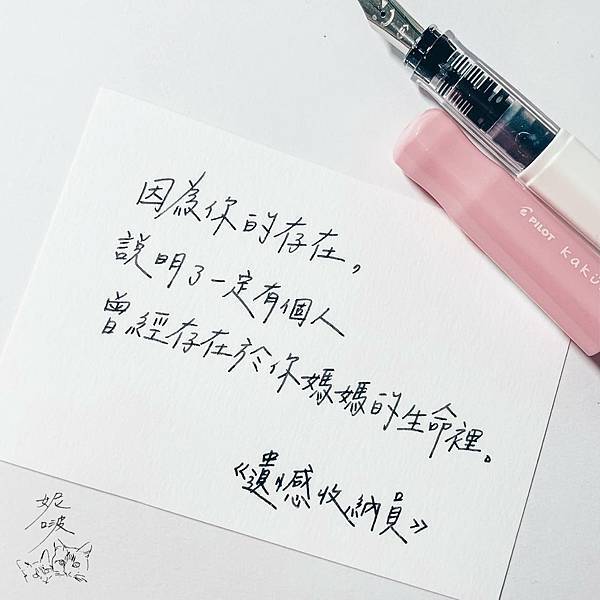 因為你的存在，
說明了一定有個人
曾經存在於你媽媽的生命裡。
《遺憾收納員》
PILOT kakü
妮
啵